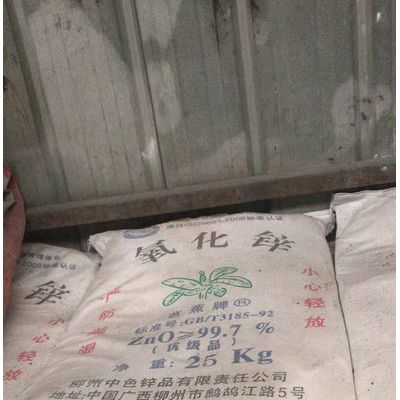 氧化锌
严防潮湿
小心轻放
蕉牌
标准号:GB/T3185-92
ZnO≥99.7 %
(优级品)
净重: 25 Kg
柳州中色锌品有限责任公司
地址:中国广西柳州市鹧鸪江路5号
锌
小心轻放